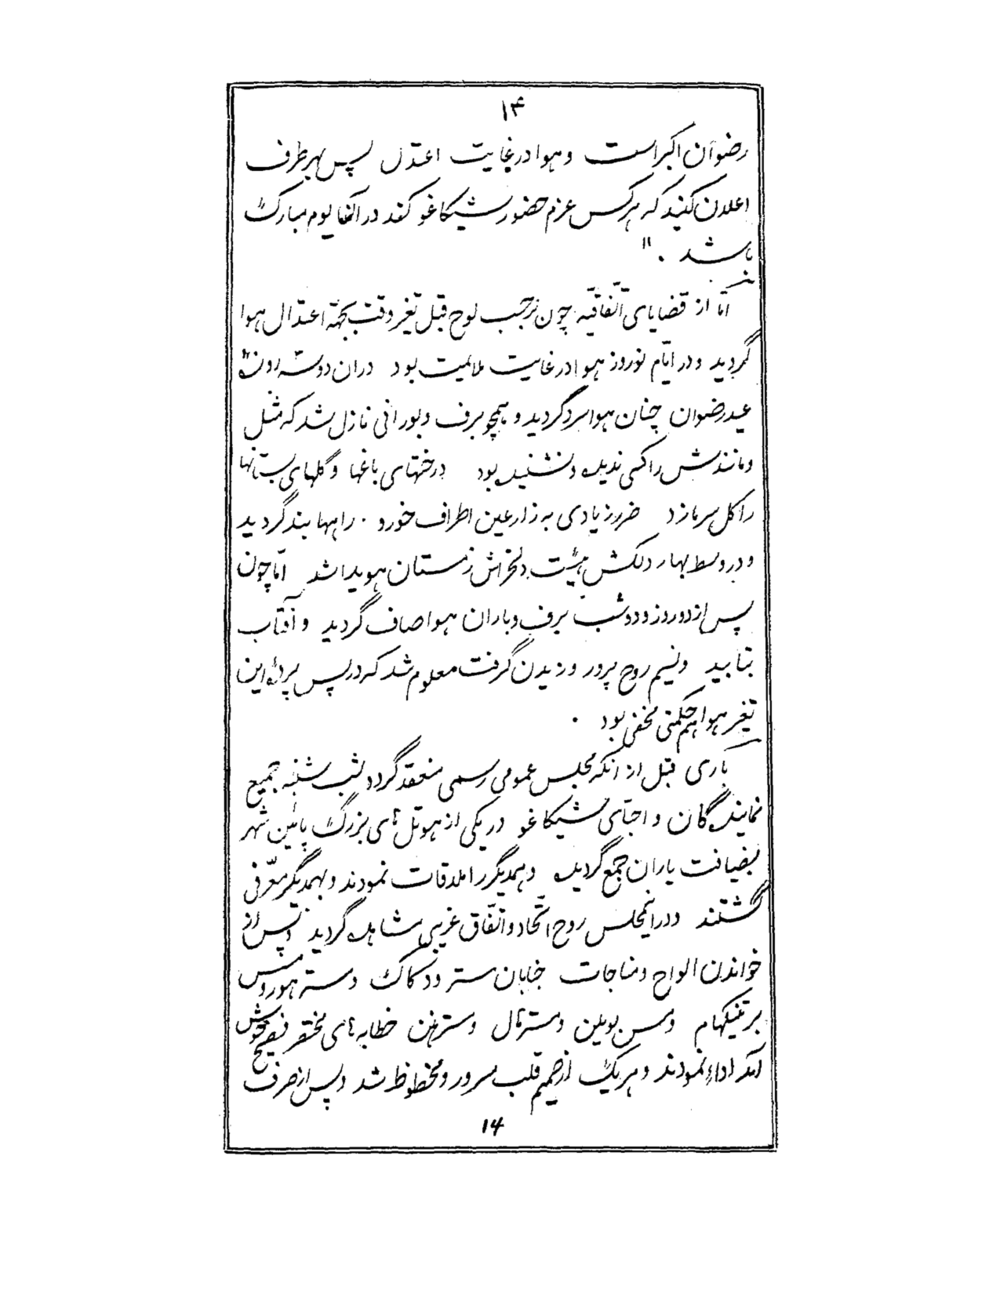 ۱۴
رضوان اکبر است وهوا درغایت اعتدل پس بهر طرف
اعلان کنید که هر کس عزم حضور شیکاغو کند در آنجا یوم مبارک
باشد . "
اما از قضایای اتّفاقیّه چون بموجب لوح قبل تغیر وقت بجهة اعتدال هوا
گردید ودر ایّام نوروز هوا درغایت ملایمت بود دران دوسه روزه
عید رضوان چنان هوا سرد گردید و همچو برف وبورانی نازل شد که مثل
ومانندش را کسی ندیده ونشنیده بود درختهای باغها وگلهای بستانها
را کل سرما زد ضرر زیادی به زارعین اطراف خورد . راهها بند گردید
ودر وسط بهار دلکش هیئت دلخراش زمستان هویدا شد امّا چون
پس از دو روز ودو شب برف وباران هوا صاف گردید وآفتاب
بتابید ونسیم روح پرور وزیدن گرفت معلوم شد که در پس پردهٔ این
تغیر هوا هم حکمتی مخفی بود .
باری قبل از آنکه مجلس عمومی رسمی منعقد گردد لیلهٔ شنبه جمیع
نمایندگان واحبّای شیکاغو در یکی از هوتل های بزرگ پائین شهر
بضیافت یاران جمع گردیده وهمدیگر را ملاقات نمودند وبهمدیگر معرّفی
گشتند ودر انمجلس روح اتّحاد واتّفاق غریبی مشاهده گردید وپس از
خواندن الواح ومناجات جنابان مستر وودکاک ومستر هور ومس
برتنیکهام ومسس بویلن ومستر هال ومستر خطابه های مختصر فصیح خوش
آمد اداء نمودند وهریک از صمیم قلب مسرور ومحظوظ شد وپس از صرف
14